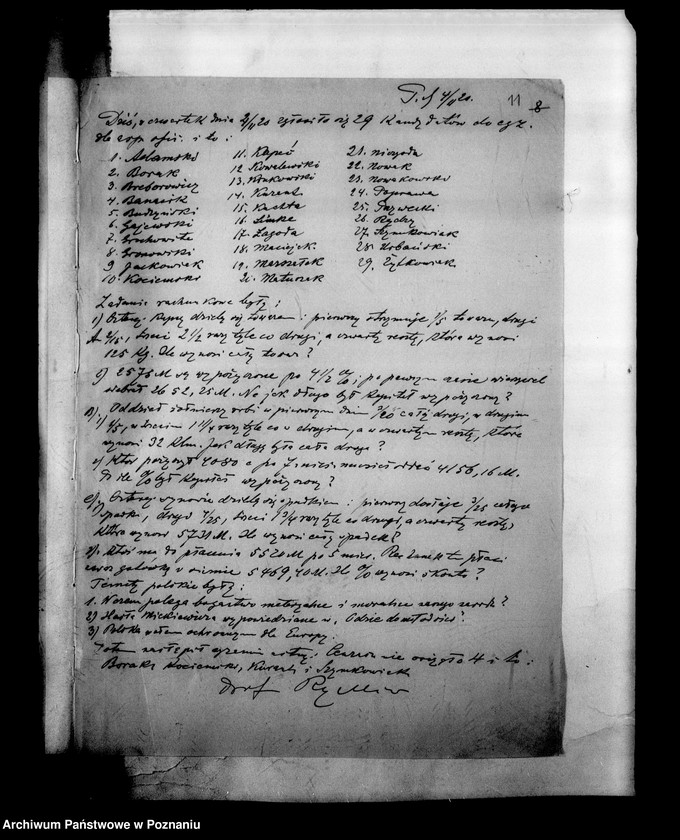 11 8
Dziś, w czwartek dnia zgłosiło się 29 kandydatów do egz.
dla asp. ofic. i to:
1. Adamski
2. Borak
3. Breborowicz
4. Banasik
5. Budzyński
6. Gajewski
7. Grochowite
8. Gronowski
9. Jackowiak
10. Kociemski
11. Kapś
12. Kowalewski
13. Kinkowski
14. Kurent
15. Kuchta
16. Linke
17. Łagoda
18. Maciejek
19. Marszałek
20. Matuszek
21. Niezgoda
22. Nowak
23. Nowakowski
24. Poprawa
25.
26. Rychy
27. Szymkowiak
28. Urbański
29. Żytkowiak
Zadania rachunkowe były:
dzielą się towarem: pierwszy otrzymuje 1/5 towaru, drugi
A 2/15, trzeci 2 1/2 razy tyle co drugi, a czwarty resztę, która wynosi
125 kg. Ile wynosi cały towar?
2575 M są wypożyczone po 4 1/2 %; po pewnym czasie wierzyciel
odebrał 2652,25 M. Na jak długo był kapitał wypożyczony?
B) Oddział żołnierzy robi w pierwszym dniu 3/20 całej drogi, w drugim
1/5, w trzecim 1 1/4 razy tyle co w drugim, a w czwartym resztę, która
wynosi 32 klm. Jak długą była cała droga?
Ktoś pożyczył 4080 a po 7 mies. musiał oddać 4156,16 M.
Po ile % był kapitał wypożyczony?
C) synowie dzielą się spadkiem: pierwszy dostaje 3/25 całego
spadku, drugi 4/25, trzeci 1 3/4 razy tyle co drugi, a czwarty resztę,
która wynosi 5731 M. Ile wynosi cały spadek?
Ktoś ma do płacenia 5520 M po 5 mies. płaci
zaraz gotówką w sumie 5469,40 M. Ile % wynosi skonto?
Tematy polskie były:
1. W czem polega bogactwo materjalne i moralne narodu?
2) Hasła Mickiewicza wypowiedziane w „Odzie do młodości".
3) Polska wałem ochronnym dla Europy.
Potem nastąpił egzamin ustny. Cenzurę nie osiągło 4 i to:
Borak, Kociemski, Kurent i Szymkowiak